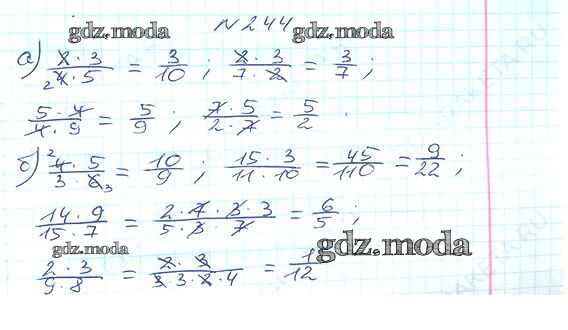 gdz.moda № 244 gdz.moda
а) 2 · 3 / 2 4 · 5 = 3/10 ; 2 · 3 / 7 · 2 = 3/7 ;
5 · 4 / 4 · 9 = 5/9 ; 7 · 5 / 2 · 7 = 5/2 .
б) 2 4 · 5 / 3 · 6 3 = 10/9 ; 15 · 3 / 11 · 10 = 45/110 = 9/22 ;
14 · 9 / 15 · 7 = 2 · 7 · 3 · 3 / 5 · 3 · 7 = 6/5 ;
gdz.moda gdz.moda
2 · 3 / 9 · 8 = 2 · 3 / 3 · 3 · 2 · 4 = 1/12